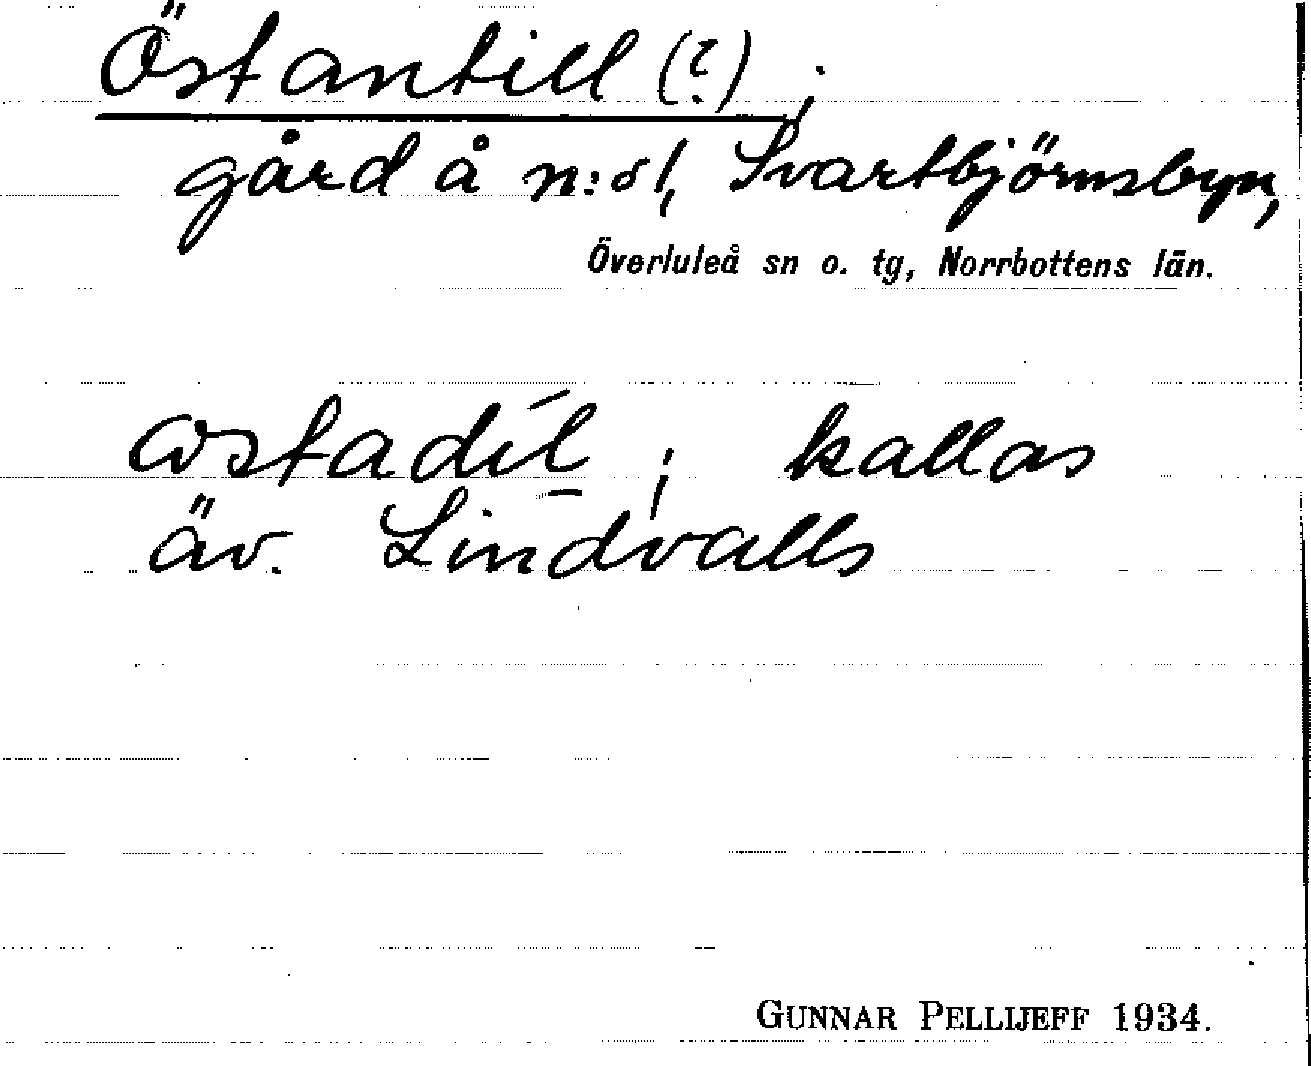 Östantill (?);
gård å n:o 1, Svartbjörnsbyn,
Överluleå sn o. tg, Norrbottens län.
ɷstadíl; kallas
äv. Lindvalls
GUNNAR PELLIJEFF 1934.